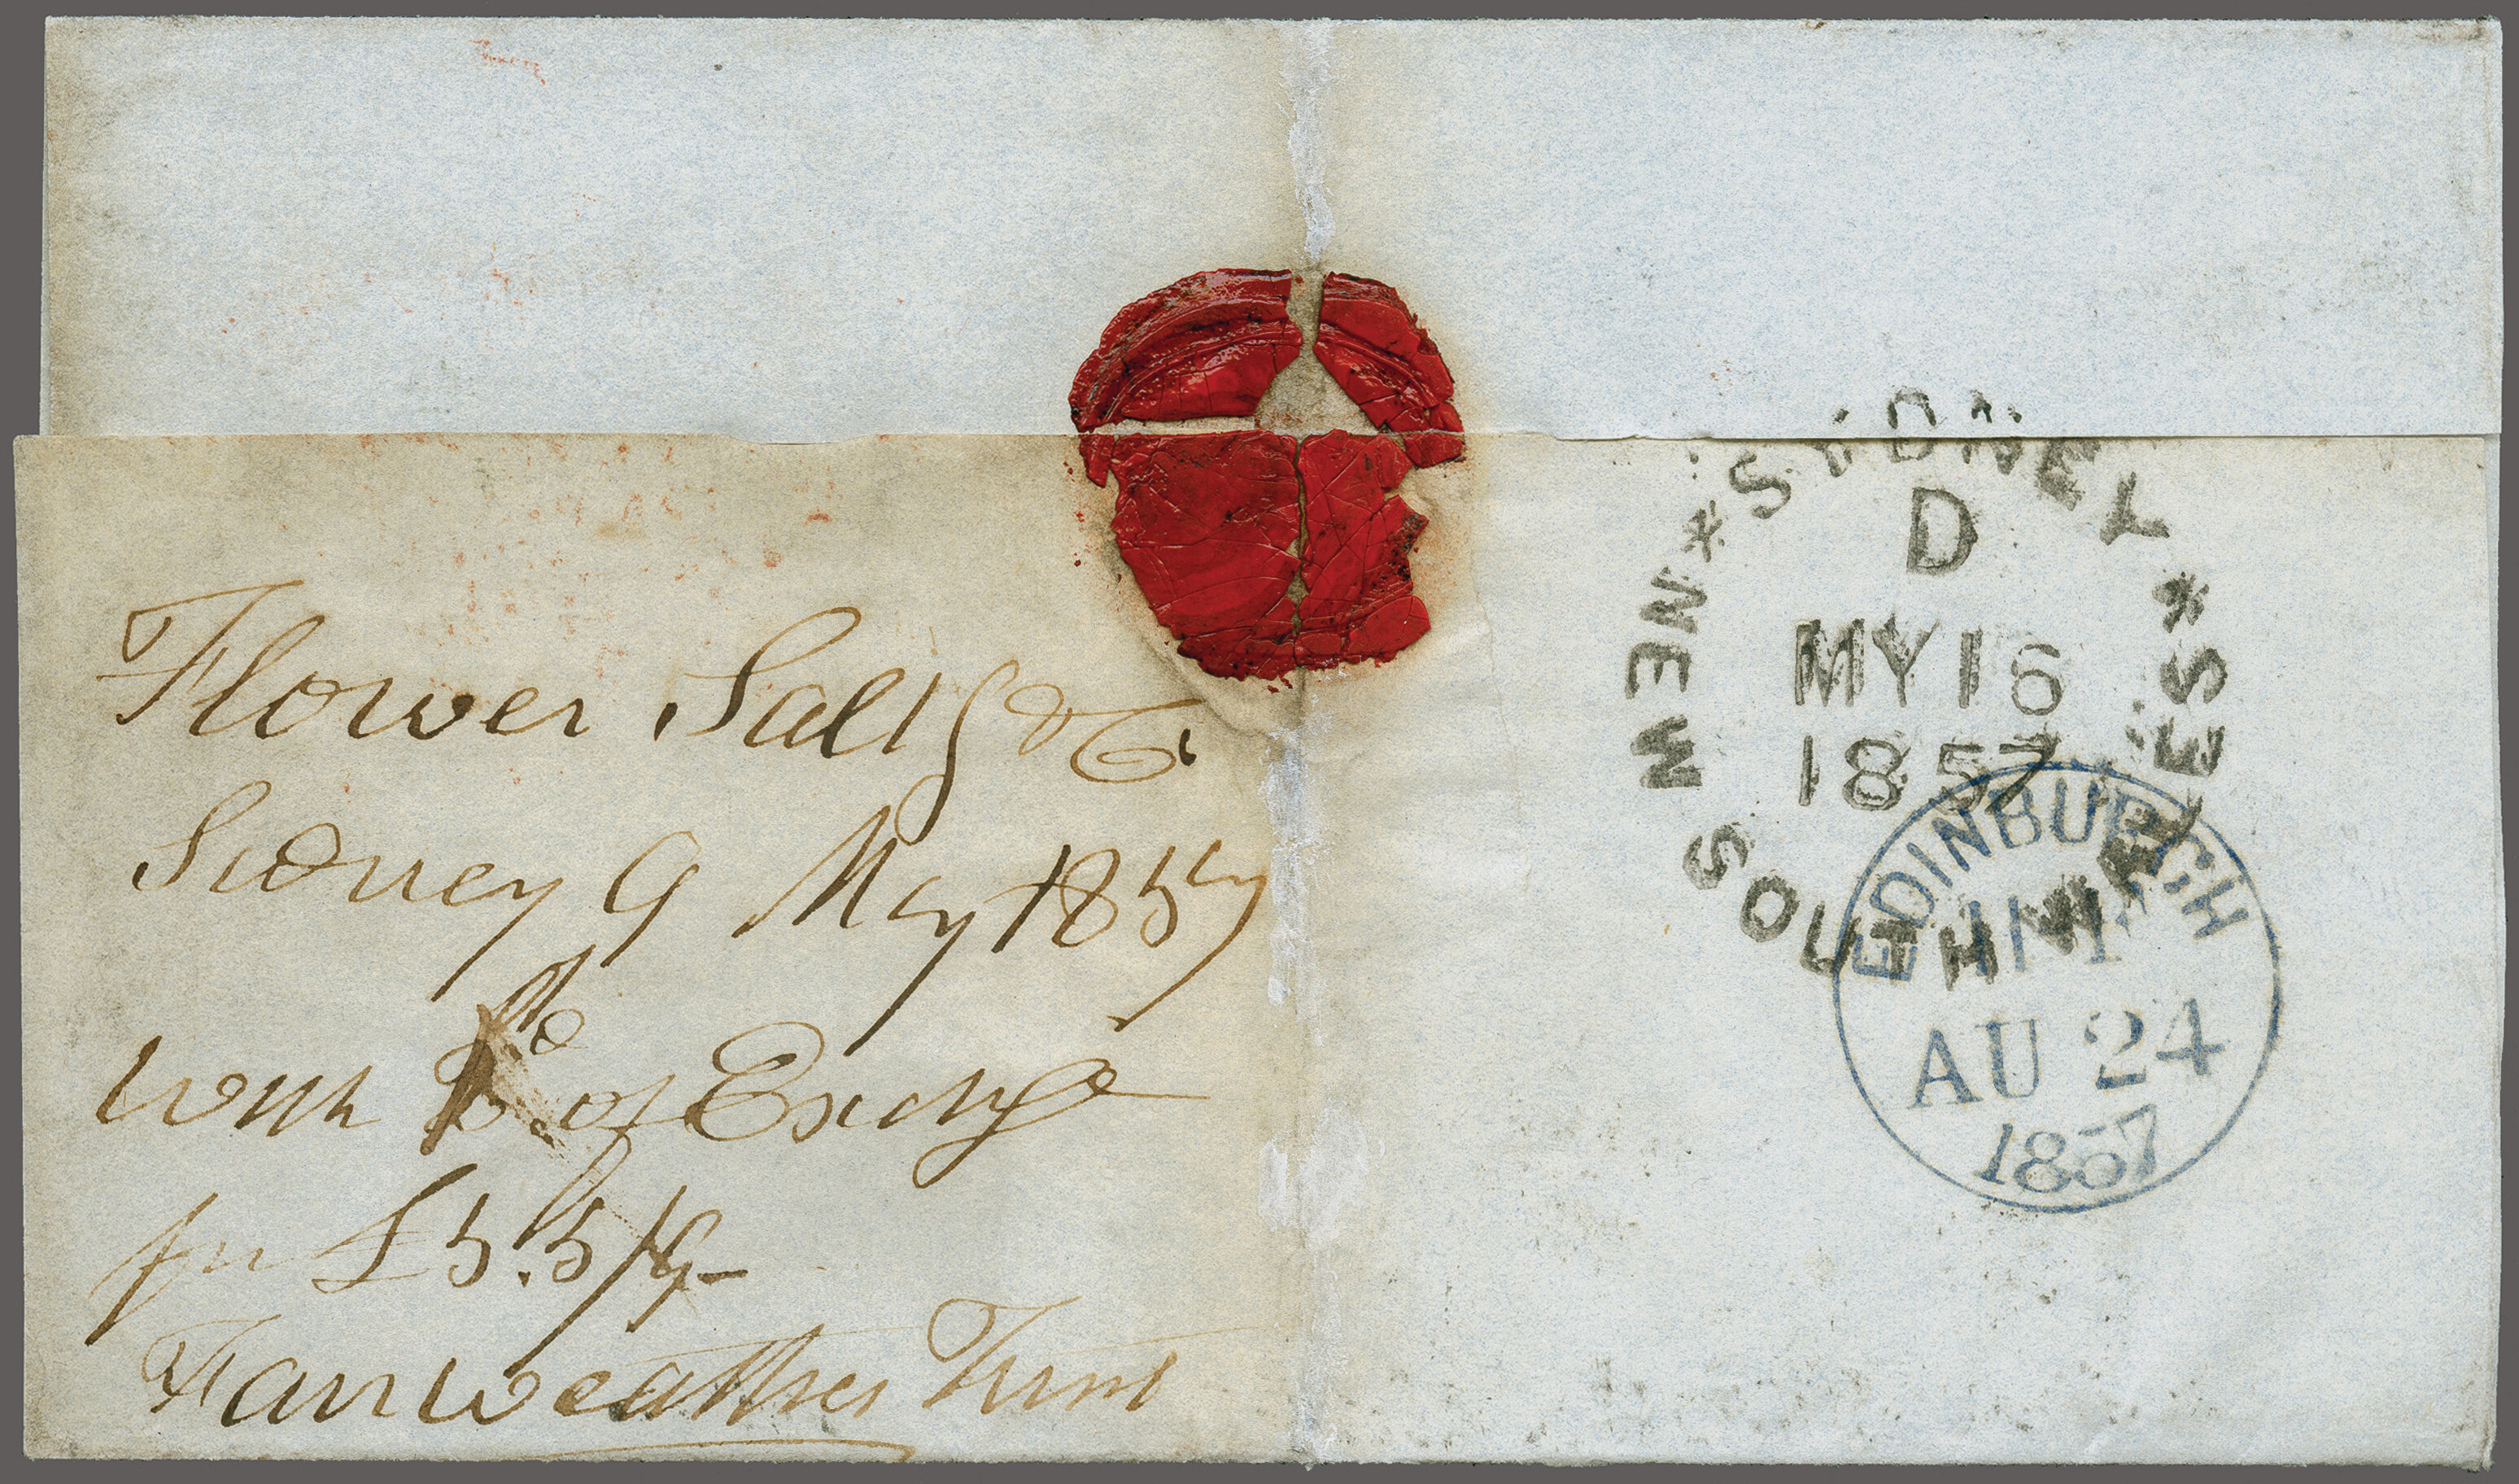 Flower Salt & Co.
Sidney 9 May 1857
With of Exchge
for £5.5/9-
Fairweather Trust
SYDNEY
D
MY 16
1857
* NEW SOUTH WALES *
EDINBURGH
AU 24
1857